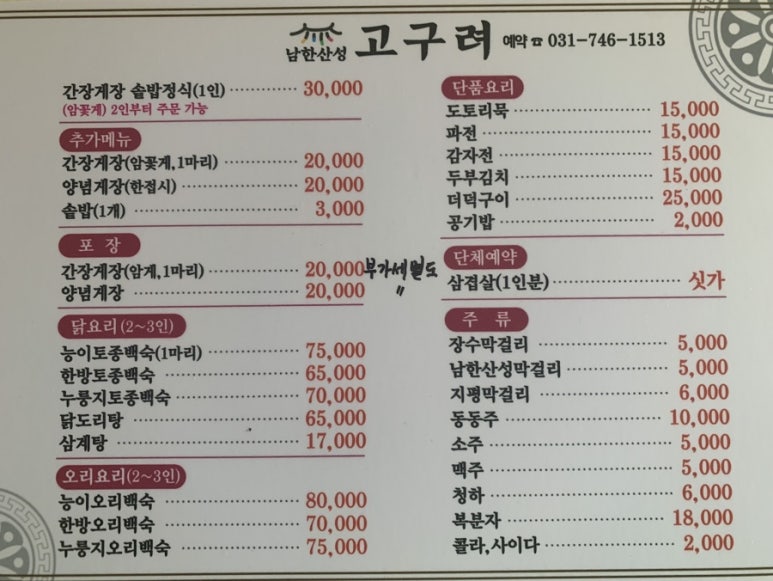 남한산성 고구려 예약 ☎ 031-746-1513
간장게장 솥밥정식(1인) 30,000
(암꽃게) 2인부터 주문 가능
추가메뉴
간장게장(암꽃게,1마리) 20,000
양념게장(한접시) 20,000
솥밥(1개) 3,000
포 장
간장게장(암게,1마리) 20,000 부가세별도
양념게장 20,000 〃
닭요리(2~3인)
능이토종백숙(1마리) 75,000
한방토종백숙 65,000
누룽지토종백숙 70,000
닭도리탕 65,000
삼계탕 17,000
오리요리(2~3인)
능이오리백숙 80,000
한방오리백숙 70,000
누룽지오리백숙 75,000
단품요리
도토리묵 15,000
파전 15,000
감자전 15,000
두부김치 15,000
더덕구이 25,000
공기밥 2,000
단체예약
삼겹살(1인분) 싯가
주 류
장수막걸리 5,000
남한산성막걸리 5,000
지평막걸리 6,000
동동주 10,000
소주 5,000
맥주 5,000
청하 6,000
복분자 18,000
콜라,사이다 2,000